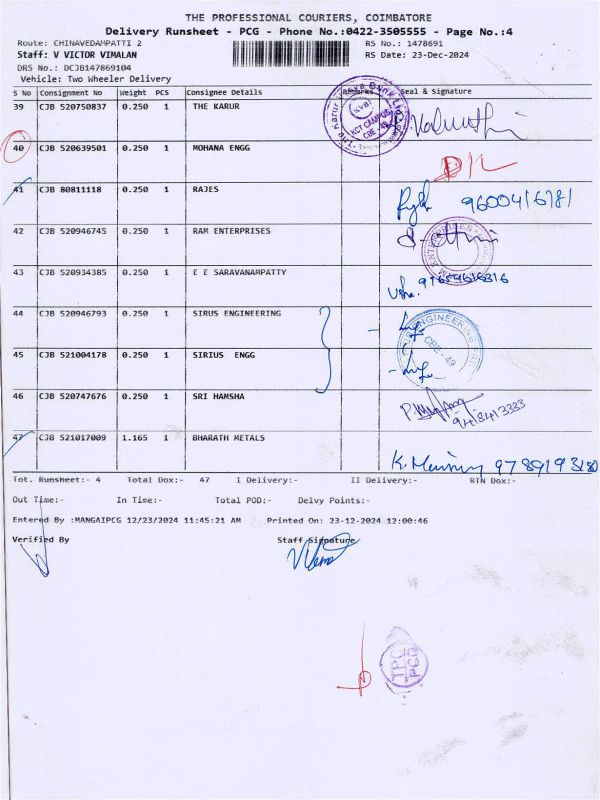 THE PROFESSIONAL COURIERS, COIMBATORE
Delivery Runsheet - PCG - Phone No.:0422-3505555 - Page No.:4
Route: CHINAVEDAMPATTI 2 RS No.: 1478691
Staff: V VICTOR VIMALAN RS Date: 23-Dec-2024
DRS No.: DCJB147869104
Vehicle: Two Wheeler Delivery
S No Consignment No Weight PCS Consignee Details Remarks Seal & Signature
39 CJB 520750837 0.250 1 THE KARUR
KVB
KCT CAMPUS
CBE - 49
40 CJB 520639501 0.250 1 MOHANA ENGG
41 CJB 80811118 0.250 1 RAJES 9600416781
42 CJB 520946745 0.250 1 RAM ENTERPRISES
43 CJB 520934385 0.250 1 E E SARAVANAMPATTY
44 CJB 520946793 0.250 1 SIRUS ENGINEERING
CBE - 49
45 CJB 521004178 0.250 1 SIRIUS ENGG
46 CJB 520747676 0.250 1 SRI HAMSHA
47 CJB 521017009 1.165 1 BHARATH METALS
Tot. Runsheet:- 4 Total Dox:- 47 I Delivery:- II Delivery:- RTN Dox:-
Out Time:- In Time:- Total POD:- Delvy Points:-
Entered By :MANGAIPCG 12/23/2024 11:45:21 AM Printed On: 23-12-2024 12:00:46
Verified By Staff Signature
TPC
PCG